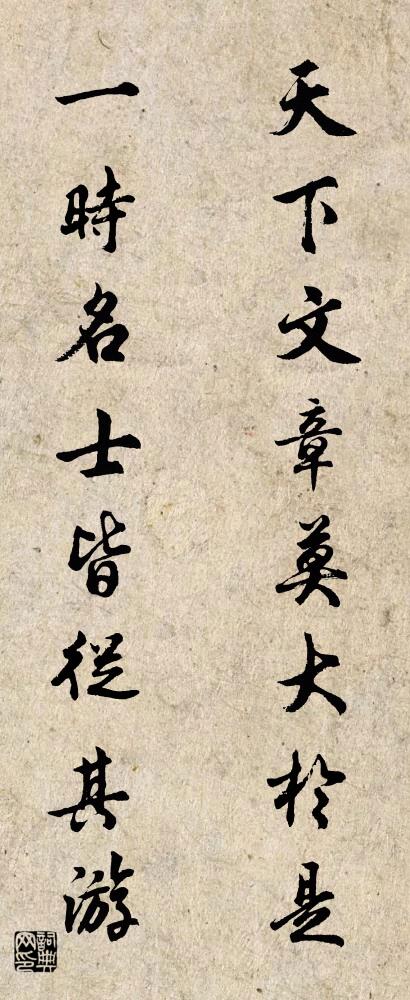 天下文章莫大於是
一時名士皆從其游
詞典網印